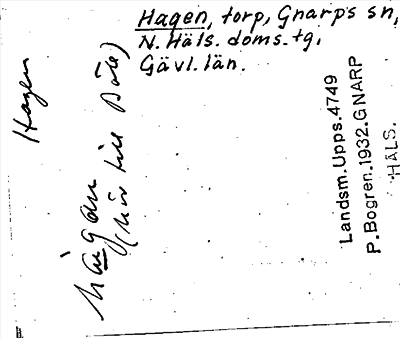 Hagen, torp, Gnarps sn,
N. Häls. doms. tg.
Gävl. län.
Hagen
hàgan
(hör till Böle)
Landsm. Upps. 4749
P. Bogren. 1932. GNARP
HÄLS.